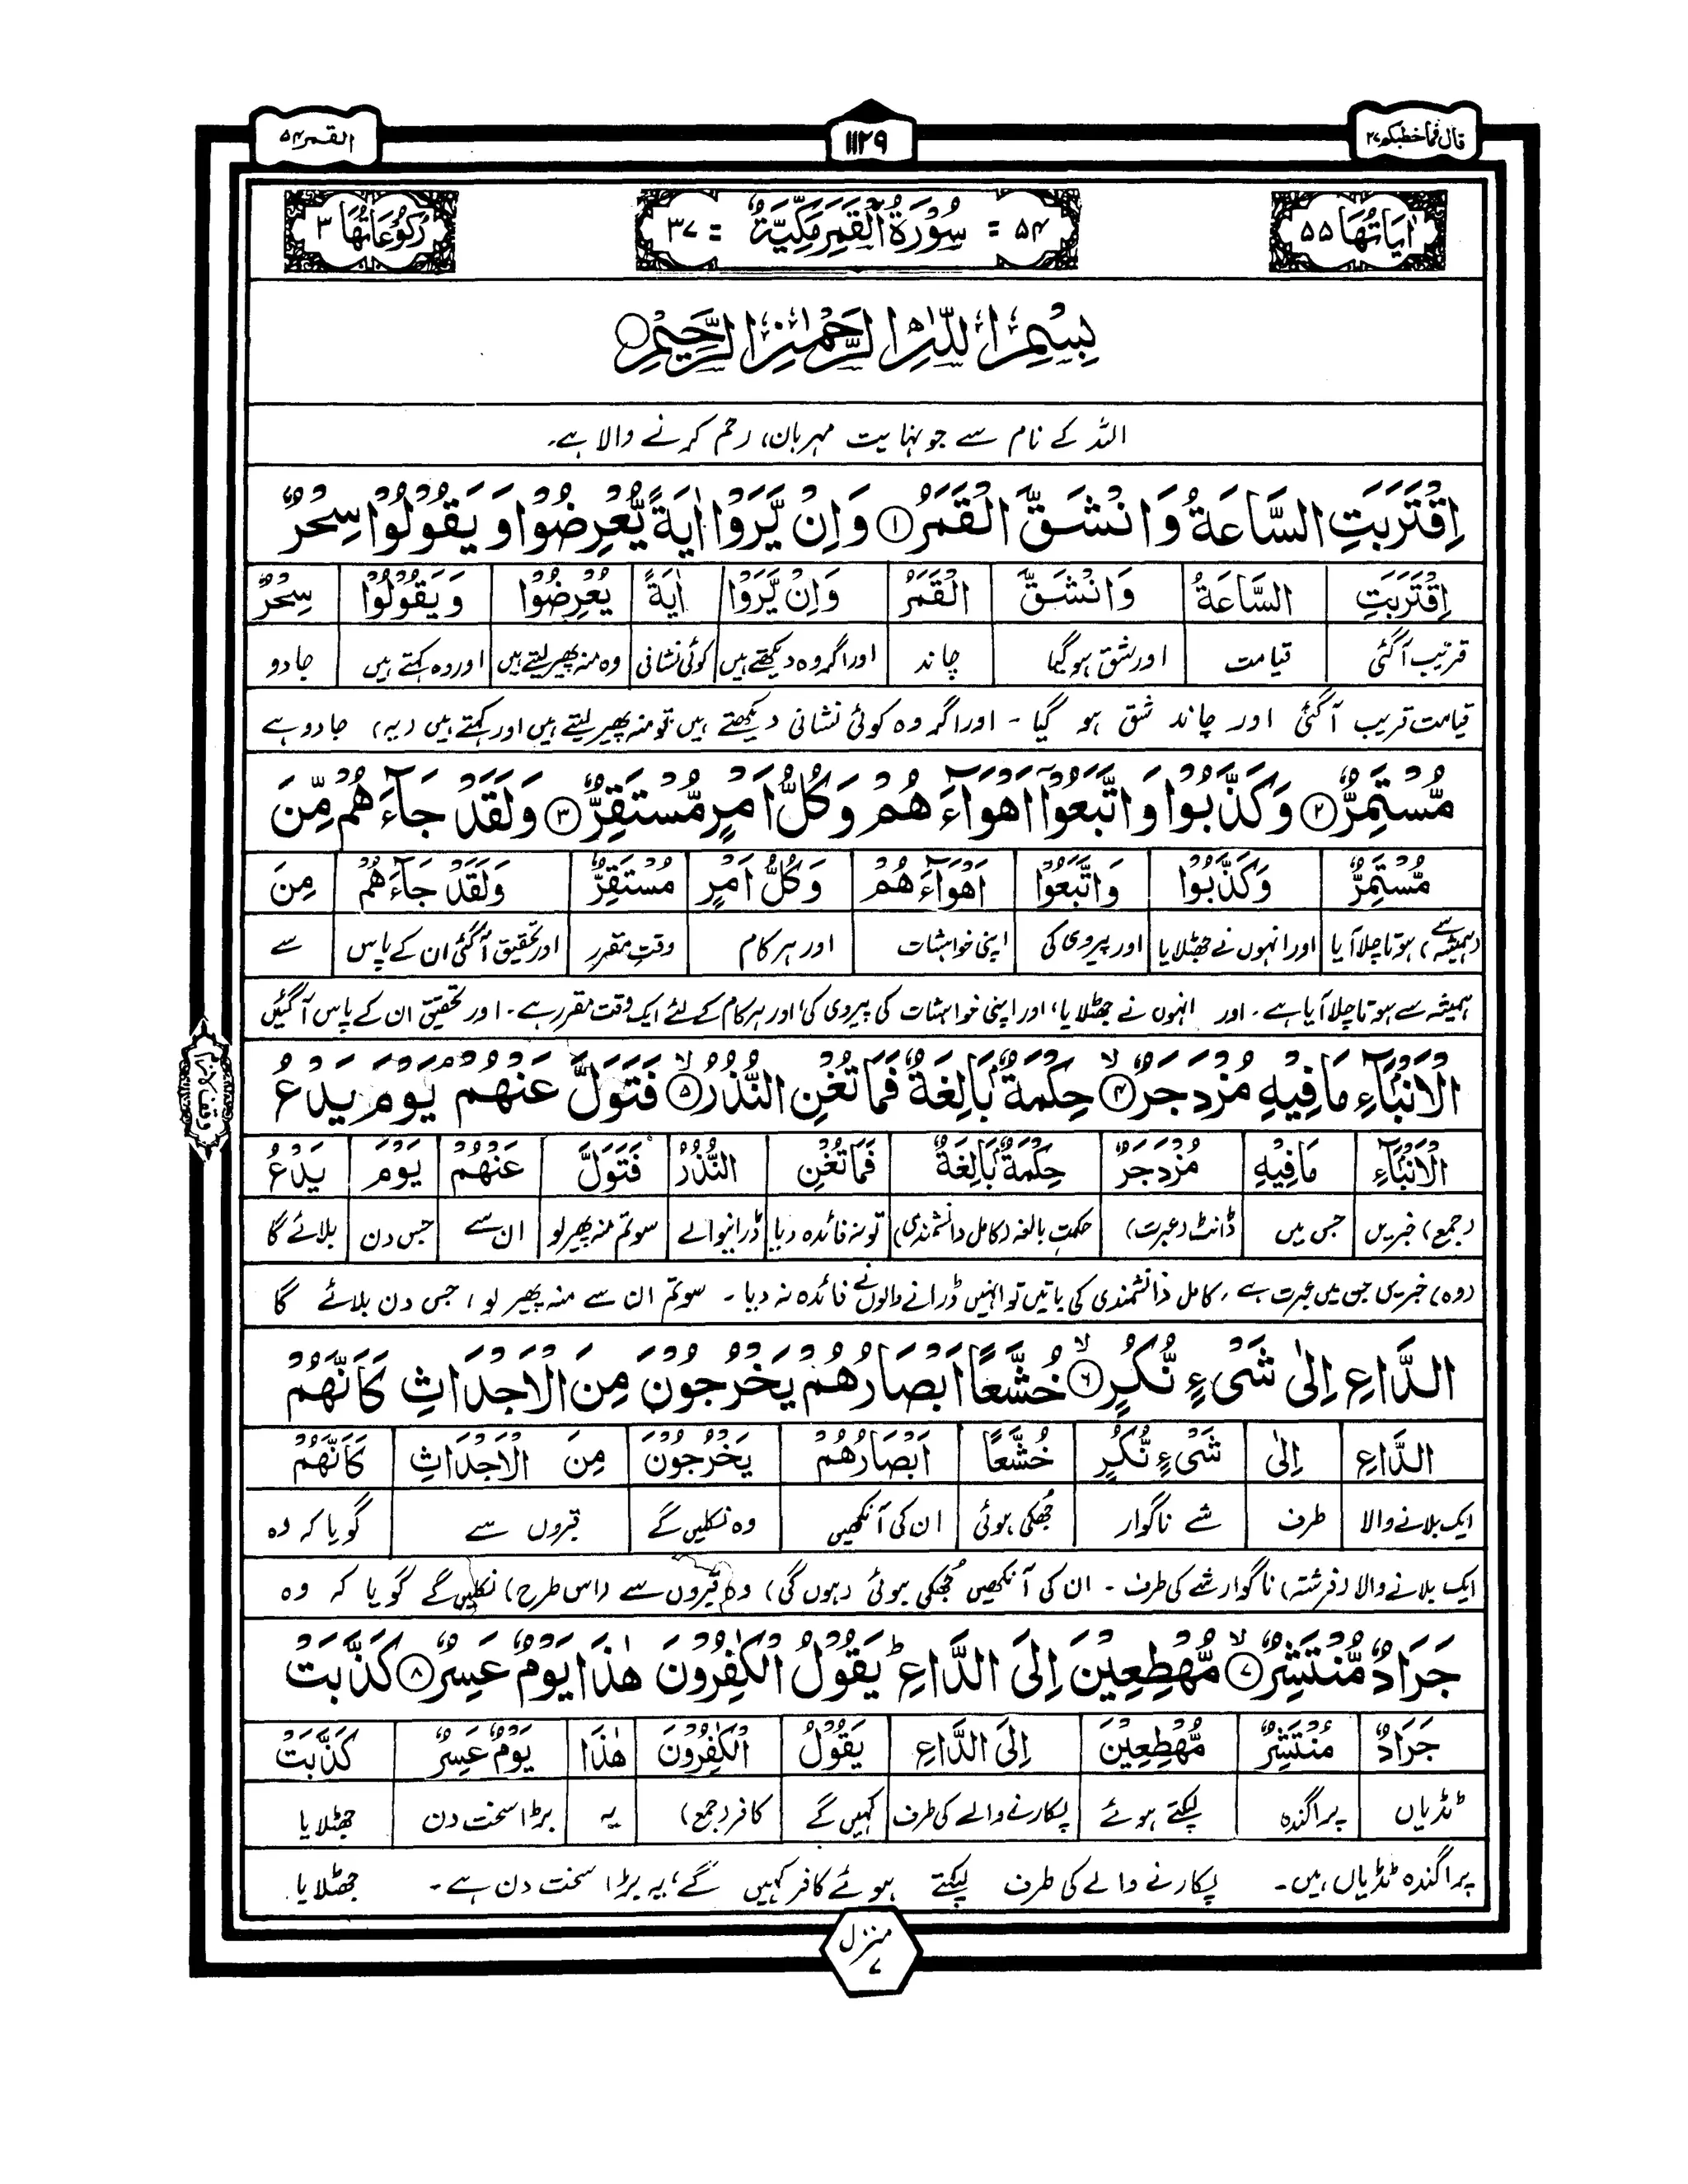 قال فما خطبکم ۲۷
۱۱۲۹
القمر ۵۴
اٰیَاتُهَا ۵۵
۵۴ = سُوْرَةُ الْقَمَرِ مَكِّيَّةٌ = ۳۷
رُكُوْعَاتُهَا ۳
بِسْمِ اللّٰهِ الرَّحْمٰنِ الرَّحِيْمِ
اللہ کے نام سے جو نہایت مہربان، رحم کرنے والا ہے۔
اِقْتَرَبَتِ السَّاعَةُ وَانْشَقَّ الْقَمَرُ ۱ وَاِنْ يَّرَوْا اٰيَةً يُّعْرِضُوْا وَيَقُوْلُوْا سِحْرٌ
اِقْتَرَبَتِ السَّاعَةُ وَانْشَقَّ الْقَمَرُ وَاِنْ يَّرَوْا اٰيَةً يُعْرِضُوْا وَيَقُوْلُوْا سِحْرٌ
قریب آگئی قیامت اور شق ہوگیا چاند اور اگر وہ دیکھتے ہیں کوئی نشانی وہ منہ پھیر لیتے ہیں اور وہ کہتے ہیں جادو
قیامت قریب آگئی اور چاند شق ہو گیا ۔ اور اگر وہ کوئی نشانی دیکھتے ہیں تو منہ پھیر لیتے ہیں اور کہتے ہیں (یہ) جادو ہے
مُّسْتَمِرٌّ ۲ وَكَذَّبُوْا وَاتَّبَعُوْٓا اَهْوَآءَهُمْ وَكُلُّ اَمْرٍ مُّسْتَقِرٌّ ۳ وَلَقَدْ جَآءَهُمْ مِّنَ
مُّسْتَمِرٌّ وَكَذَّبُوْا وَاتَّبَعُوْٓا اَهْوَآءَهُمْ وَكُلُّ اَمْرٍ مُسْتَقِرٌّ وَلَقَدْ جَآءَهُمْ مِنَ
(ہمیشہ سے) ہوتا چلا آیا اور انہوں نے جھٹلایا اور پیروی کی اپنی خواہشات اور ہر کام وقتِ مقرر اور تحقیق آگئی ان کے پاس سے
ہمیشہ سے ہوتا چلا آیا ہے۔ اور انہوں نے جھٹلایا، اور اپنی خواہشات کی پیروی کی، اور ہر کام کے لئے ایک وقت مقرر ہے۔ اور تحقیق ان کے پاس آگئیں
الْاَنْۢبَآءِ مَا فِيْهِ مُزْدَجَرٌ ۴ حِكْمَةٌۢ بَالِغَةٌ فَمَا تُغْنِ النُّذُرُ ۵ فَتَوَلَّ عَنْهُمْ يَوْمَ يَدْعُ
الْاَنْۢبَآءِ مَا فِيْهِ مُزْدَجَرٌ حِكْمَةٌۢ بَالِغَةٌ فَمَا تُغْنِ النُّذُرُ فَتَوَلَّ عَنْهُمْ يَوْمَ يَدْعُ
(جمع) خبریں جس میں ڈانٹ (عبرت) حکمت بالغہ (کامل دانشمندی) تو نہ فائدہ دیا ڈرانیوالے سو تم منہ پھیر لو ان سے جس دن بلائے گا
(وہ) خبریں جن میں عبرت ہے، کامل دانشمندی کی باتیں تو انہیں ڈرانے والوں نے فائدہ نہ دیا۔ سو تم ان سے منہ پھیر لو، جس دن بلائے گا
الدَّاعِ اِلٰى شَيْءٍ نُّكُرٍ ۶ خُشَّعًا اَبْصَارُهُمْ يَخْرُجُوْنَ مِنَ الْاَجْدَاثِ كَاَنَّهُمْ
الدَّاعِ اِلٰى شَيْءٍ نُّكُرٍ خُشَّعًا اَبْصَارُهُمْ يَخْرُجُوْنَ مِنَ الْاَجْدَاثِ كَاَنَّهُمْ
ایک بلانے والا طرف شے ناگوار جُھکی ہوئی ان کی آنکھیں وہ نکلیں گے قبروں سے گویا کہ وہ
ایک بلانے والا (فرشتہ) ناگوار شے کی طرف ۔ ان کی آنکھیں جُھکی ہوئی (ہوں گی) وہ قبروں سے (اس طرح) نکلیں گے گویا کہ وہ
جَرَادٌ مُّنْتَشِرٌ ۷ مُّهْطِعِيْنَ اِلَى الدَّاعِ ؕ يَقُوْلُ الْكٰفِرُوْنَ هٰذَا يَوْمٌ عَسِرٌ ۸ كَذَّبَتْ
جَرَادٌ مُنْتَشِرٌ مُّهْطِعِيْنَ اِلَى الدَّاعِ يَقُوْلُ الْكٰفِرُوْنَ هٰذَا يَوْمٌ عَسِرٌ كَذَّبَتْ
ٹڈیاں پراگندہ لپکتے ہوئے پکارنے والے کی طرف کہیں گے کافر (جمع) یہ بڑا سخت دن جھٹلایا
پراگندہ ٹڈیاں ہیں۔ پکارنے والے کی طرف لپکتے ہوئے کافر کہیں گے، یہ بڑا سخت دن ہے۔ جھٹلایا
منزل ۷